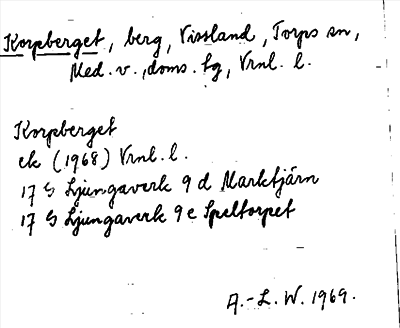 Korpberget, berg, Vissland, Torps sn,
Med. v., doms. fg, Vrnl. l.
Korpberget
ek (1968) Vrnl. l.
17 G Ljungaverk 9 d Marktjärn
17 G Ljungaverk 9 e Speltorpet
A.-L. W. 1969.